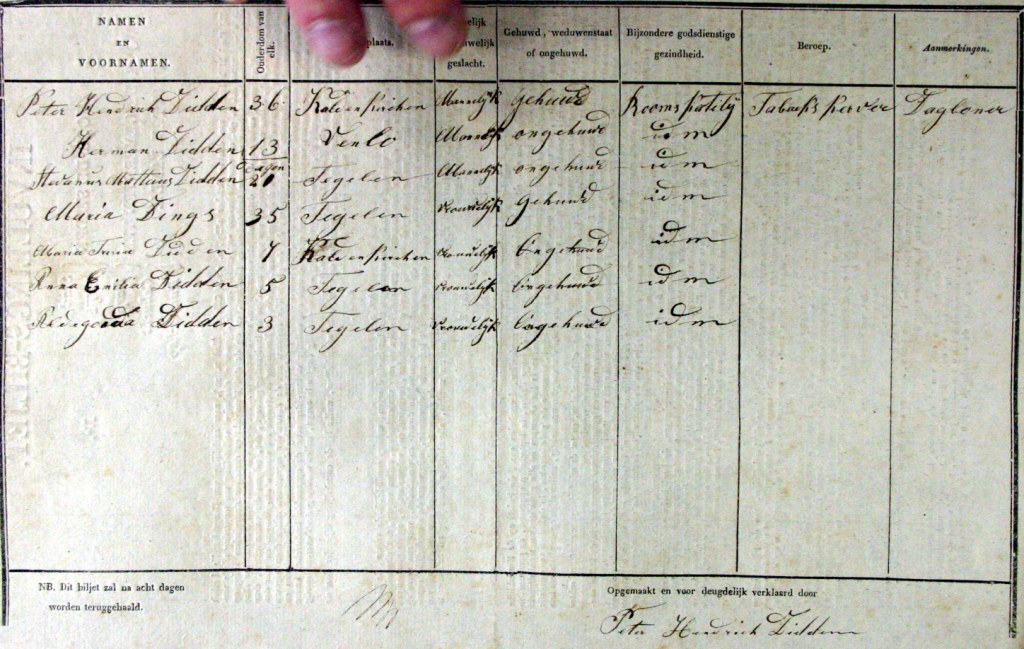 NAMEN EN VOORNAMEN. Ouderdom van elk. plaats. elijk welijk geslacht. Gehuwd, weduwenstaat of ongehuwd. Bijzondere godsdienstige gezindheid. Beroep. Aanmerkingen.
Peter Hendrich Didden 36 Kaldenkirchen Mannelijk gehuwd Rooms Tabaks Dagloner
Herman Didden 13 Venlo Mannelijk ongehuwd idm
Didden dagen 21 Tegelen Mannelijk ongehuwd idm
Maria Dings 35 Tegelen vrouwelijk gehuwd idm
Maria Didden 7 Kaldenkirchen vrouwelijk Ongehuwd idm
Anna Didden 5 Tegelen vrouwelijk Ongehuwd idm
Didden 3 Tegelen vrouwelijk Ongehuwd idm
NB. Dit biljet zal na acht dagen
worden teruggehaald.
Opgemaakt en voor deugdelijk verklaard door
Peter Hendrich Didden